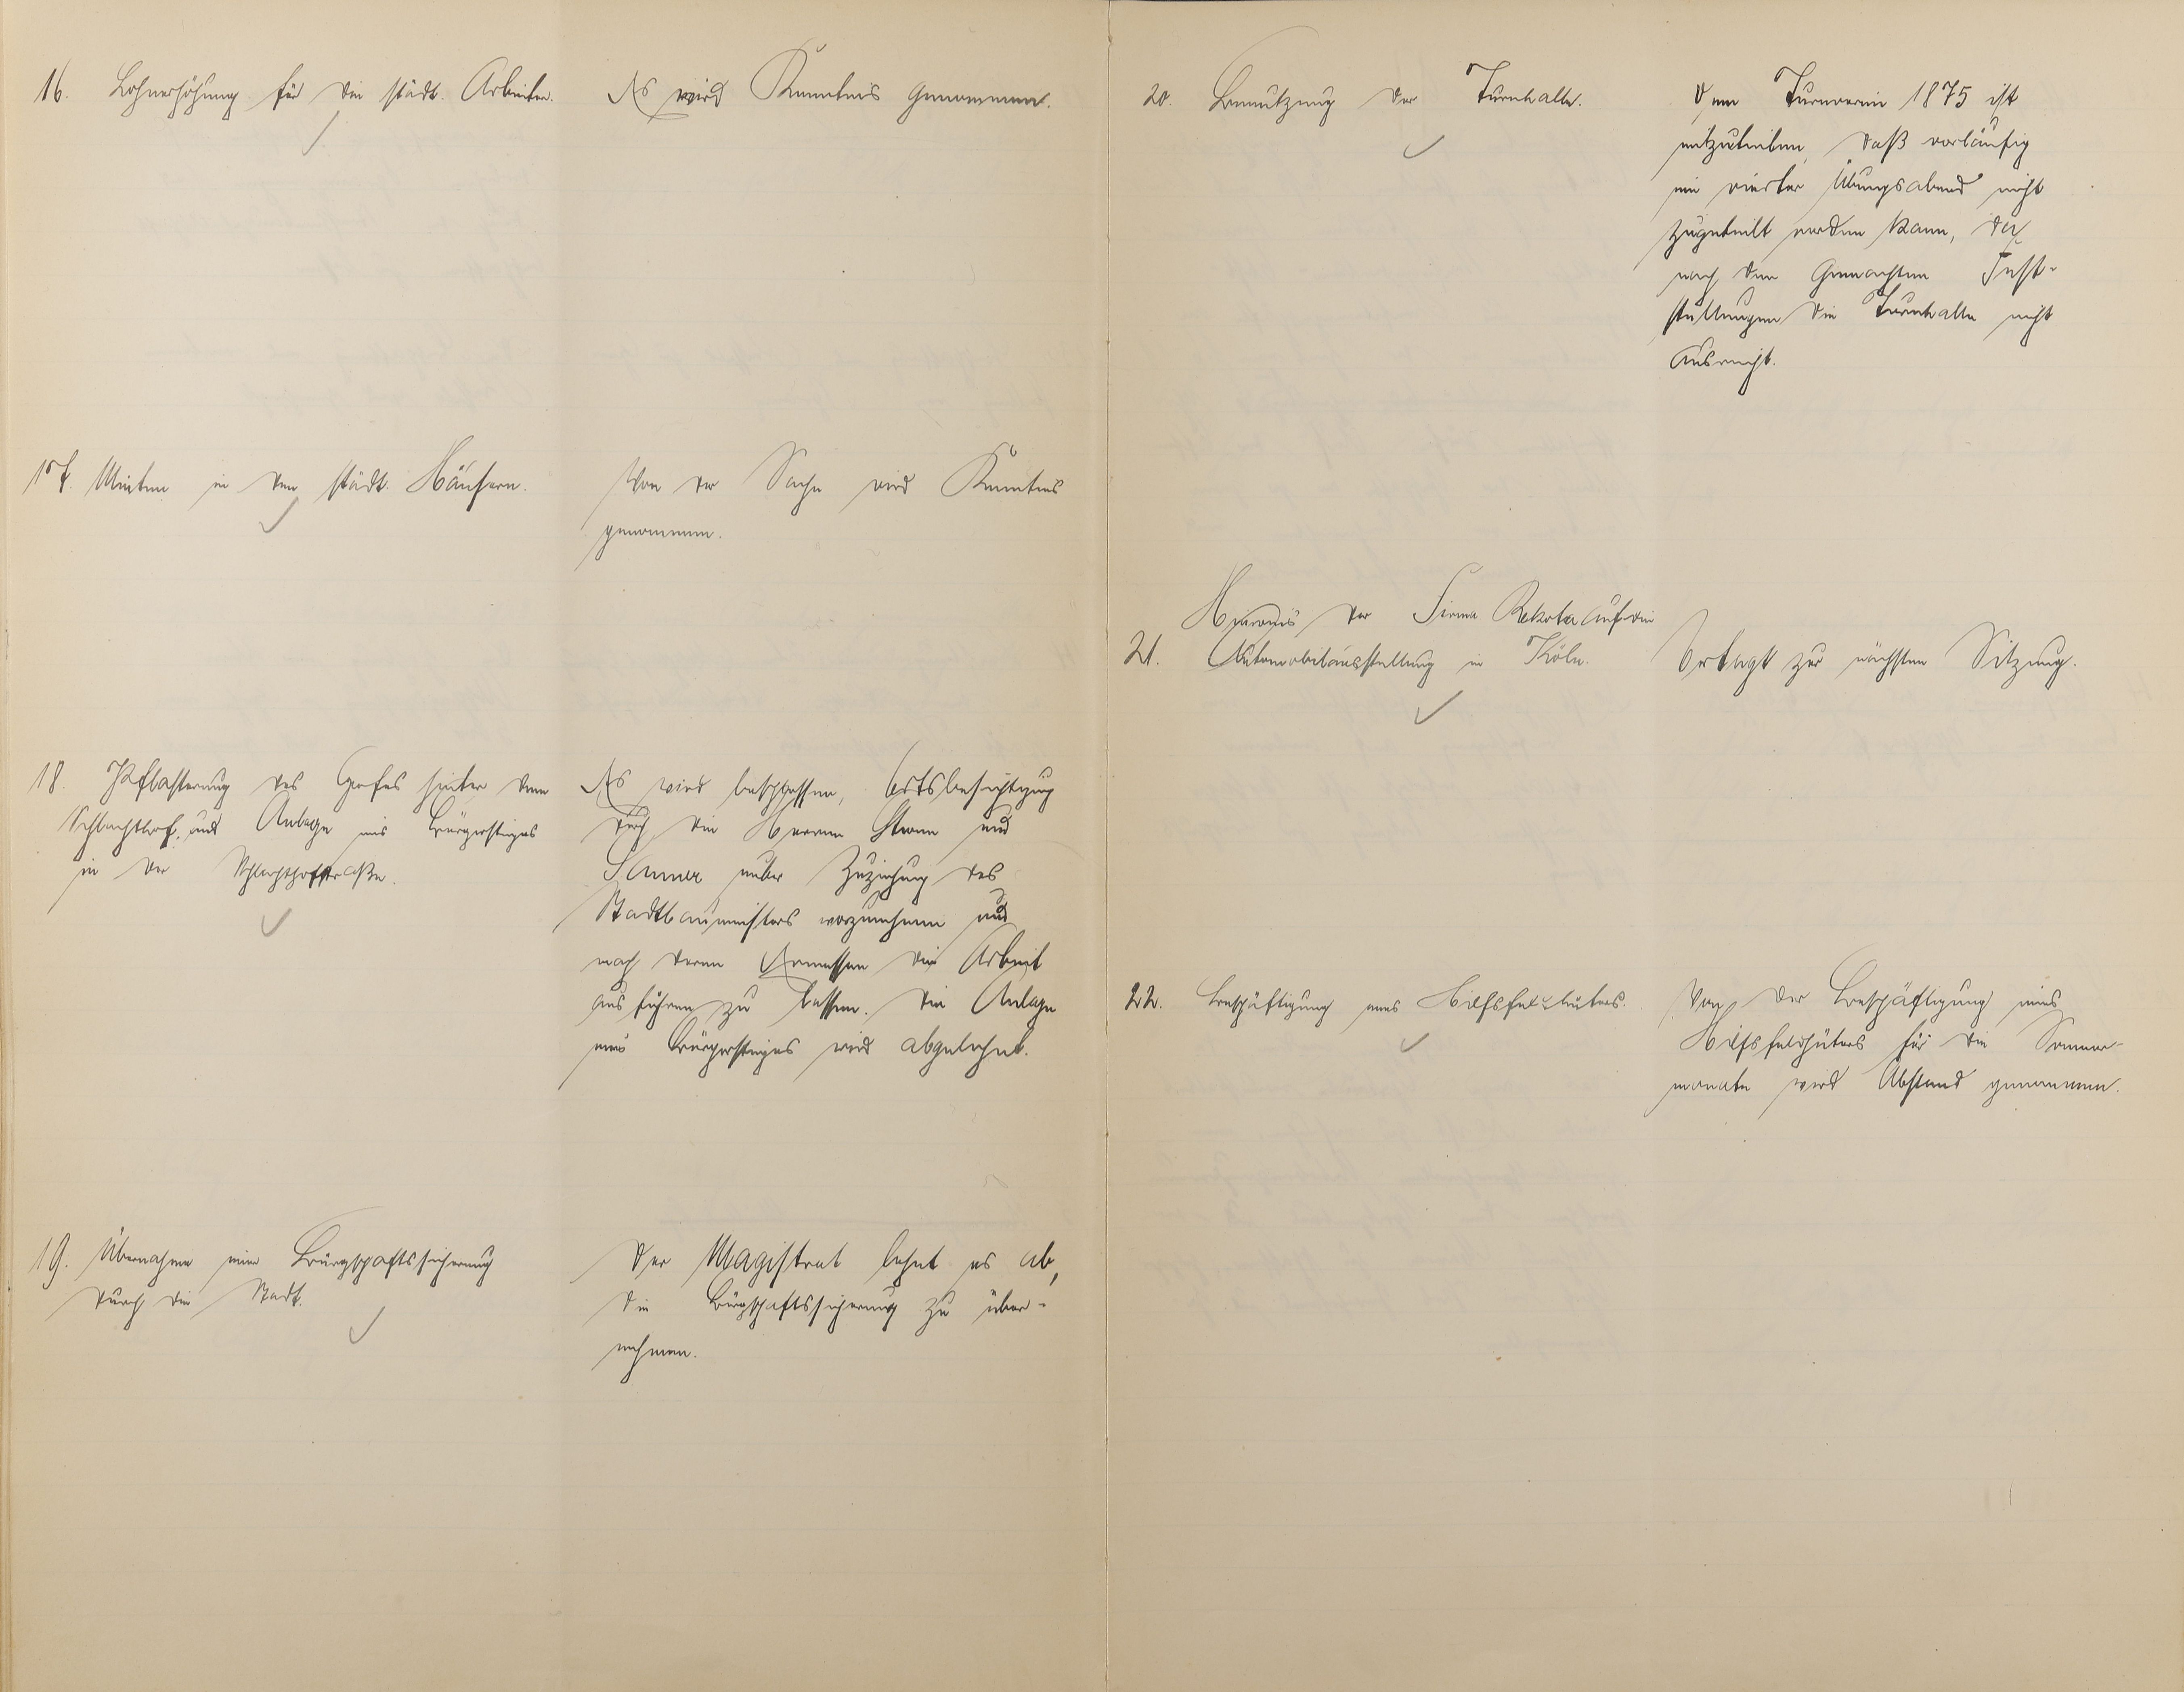 16. Lohnerhöhung für die städt. Arbeiter.
Es wird Kenntnis genommen.
17. Mieten in den städt. Häusern.
Von der Sache wird Kenntnis
genommen.
18. Pflasterung des Hofes hinter dem
Schlachthof und Anlage eines Bürgersteiges
in der Schlachthofstraße.
Es wird beschlossen, Ortsbesichtigung
durch die Herren und
unter Zuziehung des
Stadtbaumeisters vorzunehmen und
nach deren Ermessen die Arbeit
ausführen zu lassen. Die Anlage
eines Bürgersteiges wird abgelehnt.
19. Übernahme einer Bürgschaftssicherung
durch die Stadt.
Der Magistrat lehnt es ab,
die Bürgschaftssicherung zu über-
nehmen.
20. Benutzung der Turnhalle.
Dem Turnverein 1875 ist
mitzuteilen, daß vorläufig
ein vierter Übungsabend nicht
zugeteilt werden kann, da
nach den gemachten Fest-
stellungen die Turnhalle nicht
ausreicht.
Hinweis der Firma Rekota auf die
21. Automobilausstellung in Köln.
Vertagt zur nächsten Sitzung.
22. Beschäftigung eines Hilfsfeldhüters.
Von der Beschäftigung eines
Hilfsfeldhüters für die Sommer-
monate wird Abstand genommen.